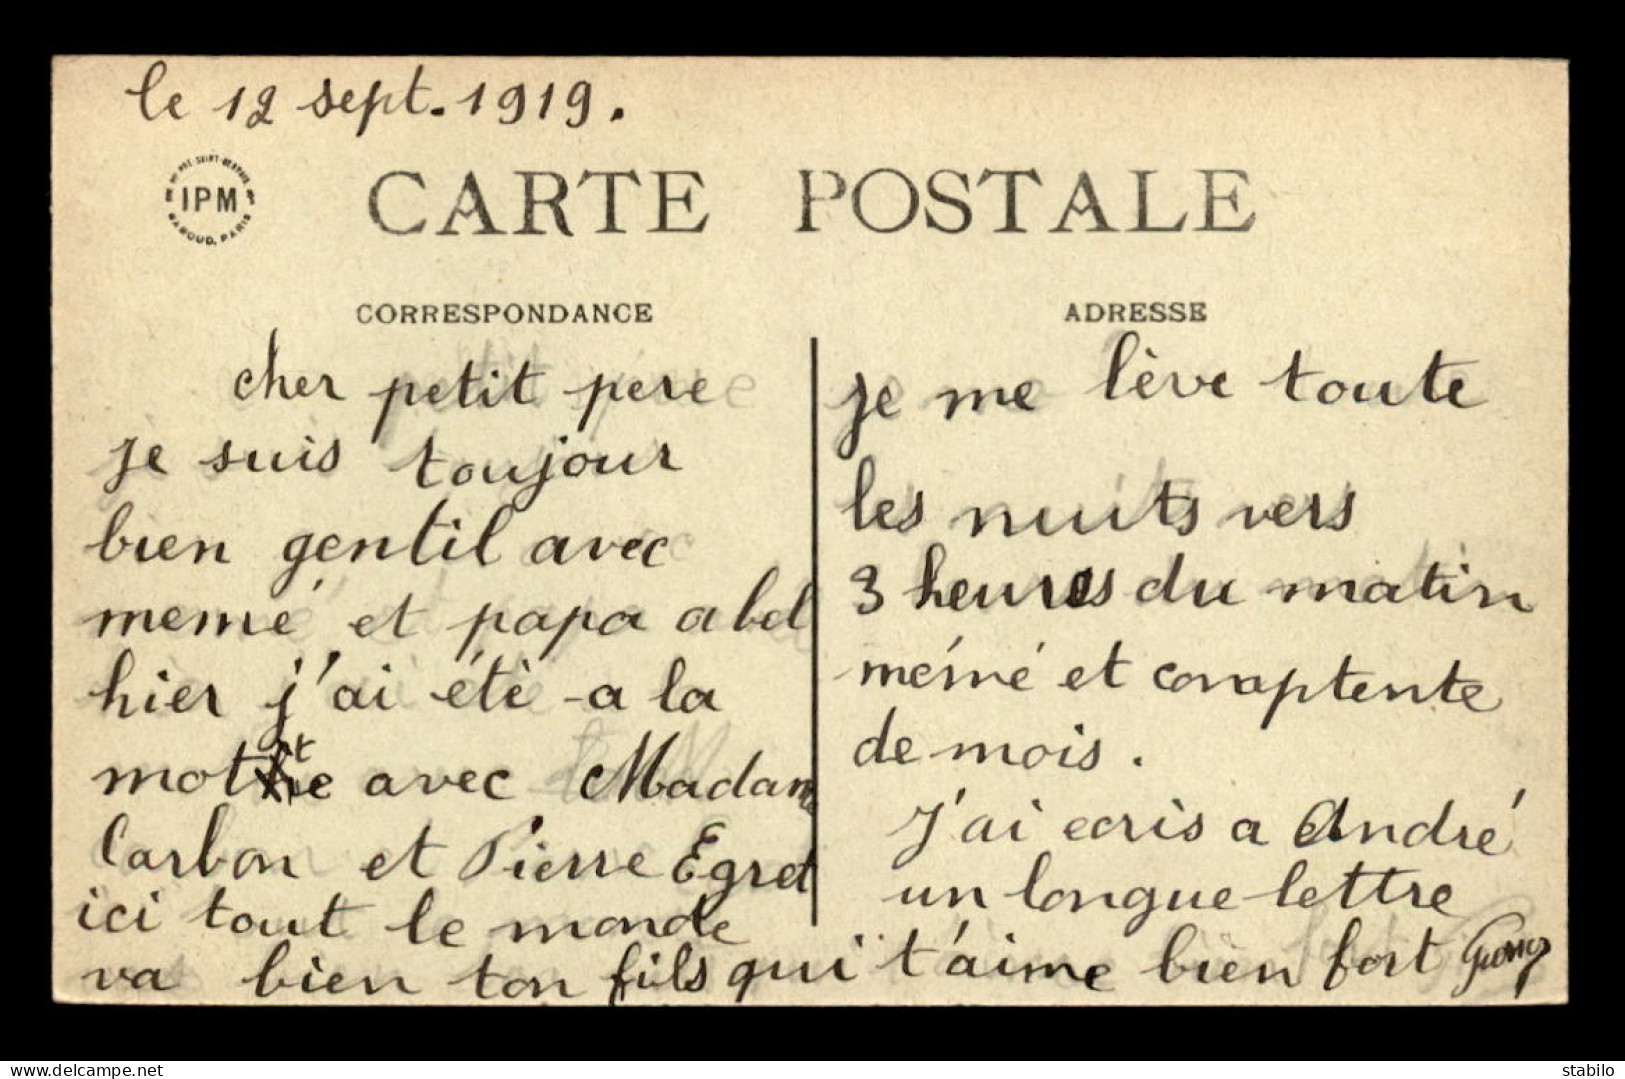 le 12 sept. 1919.
IPM
BAROUD, PARIS
CARTE POSTALE
CORRESPONDANCE
ADRESSE
cher petit pere
je suis toujour
bien gentil avec
memé et papa abel
hier j'ai été a la
motte avec Madam
Carbon et Pierre Egret
ici tout le monde
va bien ton fils qui t'aime bien fort
je me lève toute
les nuits vers
3 heures du matin
mémé et comptente
de mois.
J'ai ecris a André
un longue lettre
delcampe.net
stabilo